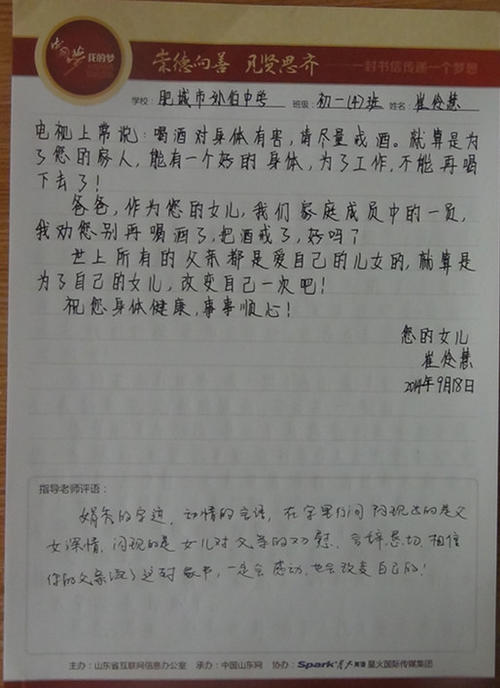 我的梦
崇德向善 见贤思齐 一封书信传递一个梦想
学校：肥城市孙伯中学 班级：初一(4)班 姓名：崔伶慧
电视上常说：喝酒对身体有害，请尽量戒酒。就算是为
了您的家人，能有一个好的身体，为了工作，不能再喝
下去了！
爸爸，作为您的女儿，我们家庭成员中的一员，
我劝您别再喝酒了，把酒戒了，好吗？
世上所有的父亲都是爱自己的儿女的，就算是
为了自己的女儿，改变自己一次吧！
祝您身体健康，事事顺心！
您的女儿
崔伶慧
2014年9月18日
指导老师评语：
娟秀的字迹，动情的言语，在字里行间闪现出的是父
女深情，闪现的是女儿对父亲的劝慰，言辞恳切，相信
你的父亲读了这封家书，一定会感动，也会改变自己的！
主办：山东省互联网信息办公室 承办：中国山东网 协办：Spark星火英语 星火国际传媒集团